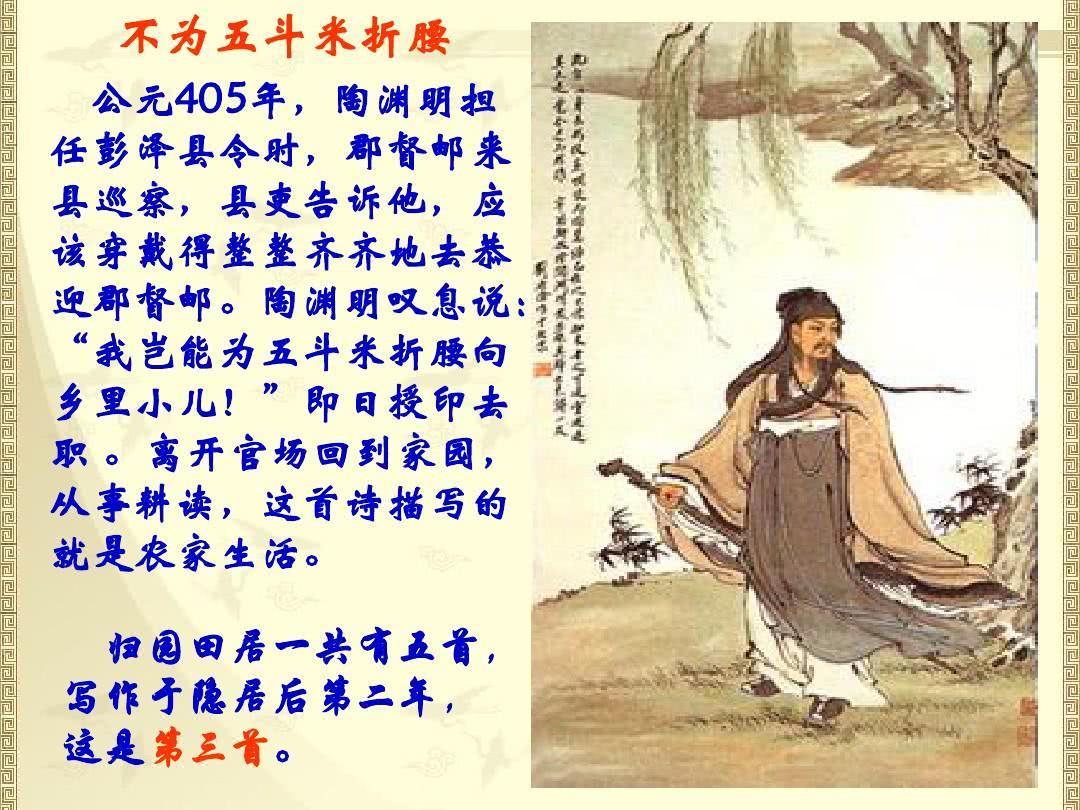 不为五斗米折腰
公元405年，陶渊明担
任彭泽县令时，郡督邮来
县巡察，县吏告诉他，应
该穿戴得整整齐齐地去恭
迎郡督邮。陶渊明叹息说：
“我岂能为五斗米折腰向
乡里小儿！”即日授印去
职。离开官场回到家园，
从事耕读，这首诗描写的
就是农家生活。
归园田居一共有五首，
写作于隐居后第二年，
这是第三首。